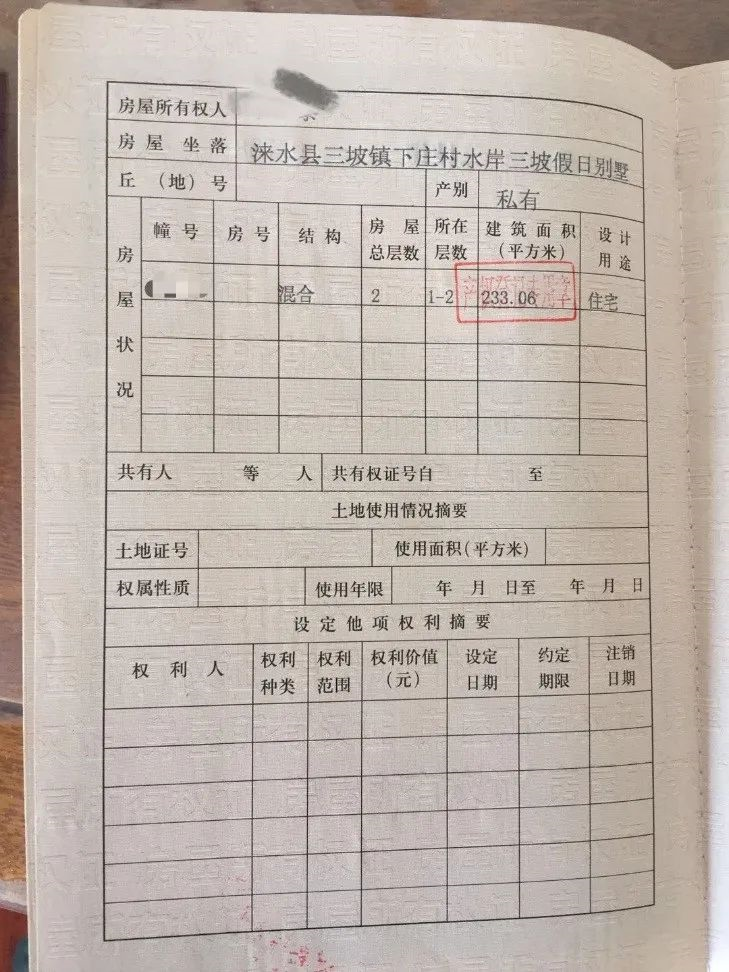 房屋所有权人
房屋坐落 涞水县三坡镇下庄村水岸三坡假日别墅
丘（地）号 产别 私有
房屋状况
幢号 房号 结构 房屋总层数 所在层数 建筑面积（平方米） 设计用途
混合 2 1-2 233.06 住宅
共有人 等 人 共有权证号自 至
土地使用情况摘要
土地证号 使用面积(平方米)
权属性质 使用年限 年 月 日至 年 月 日
设定他项权利摘要
权利人 权利种类 权利范围 权利价值（元） 设定日期 约定期限 注销日期